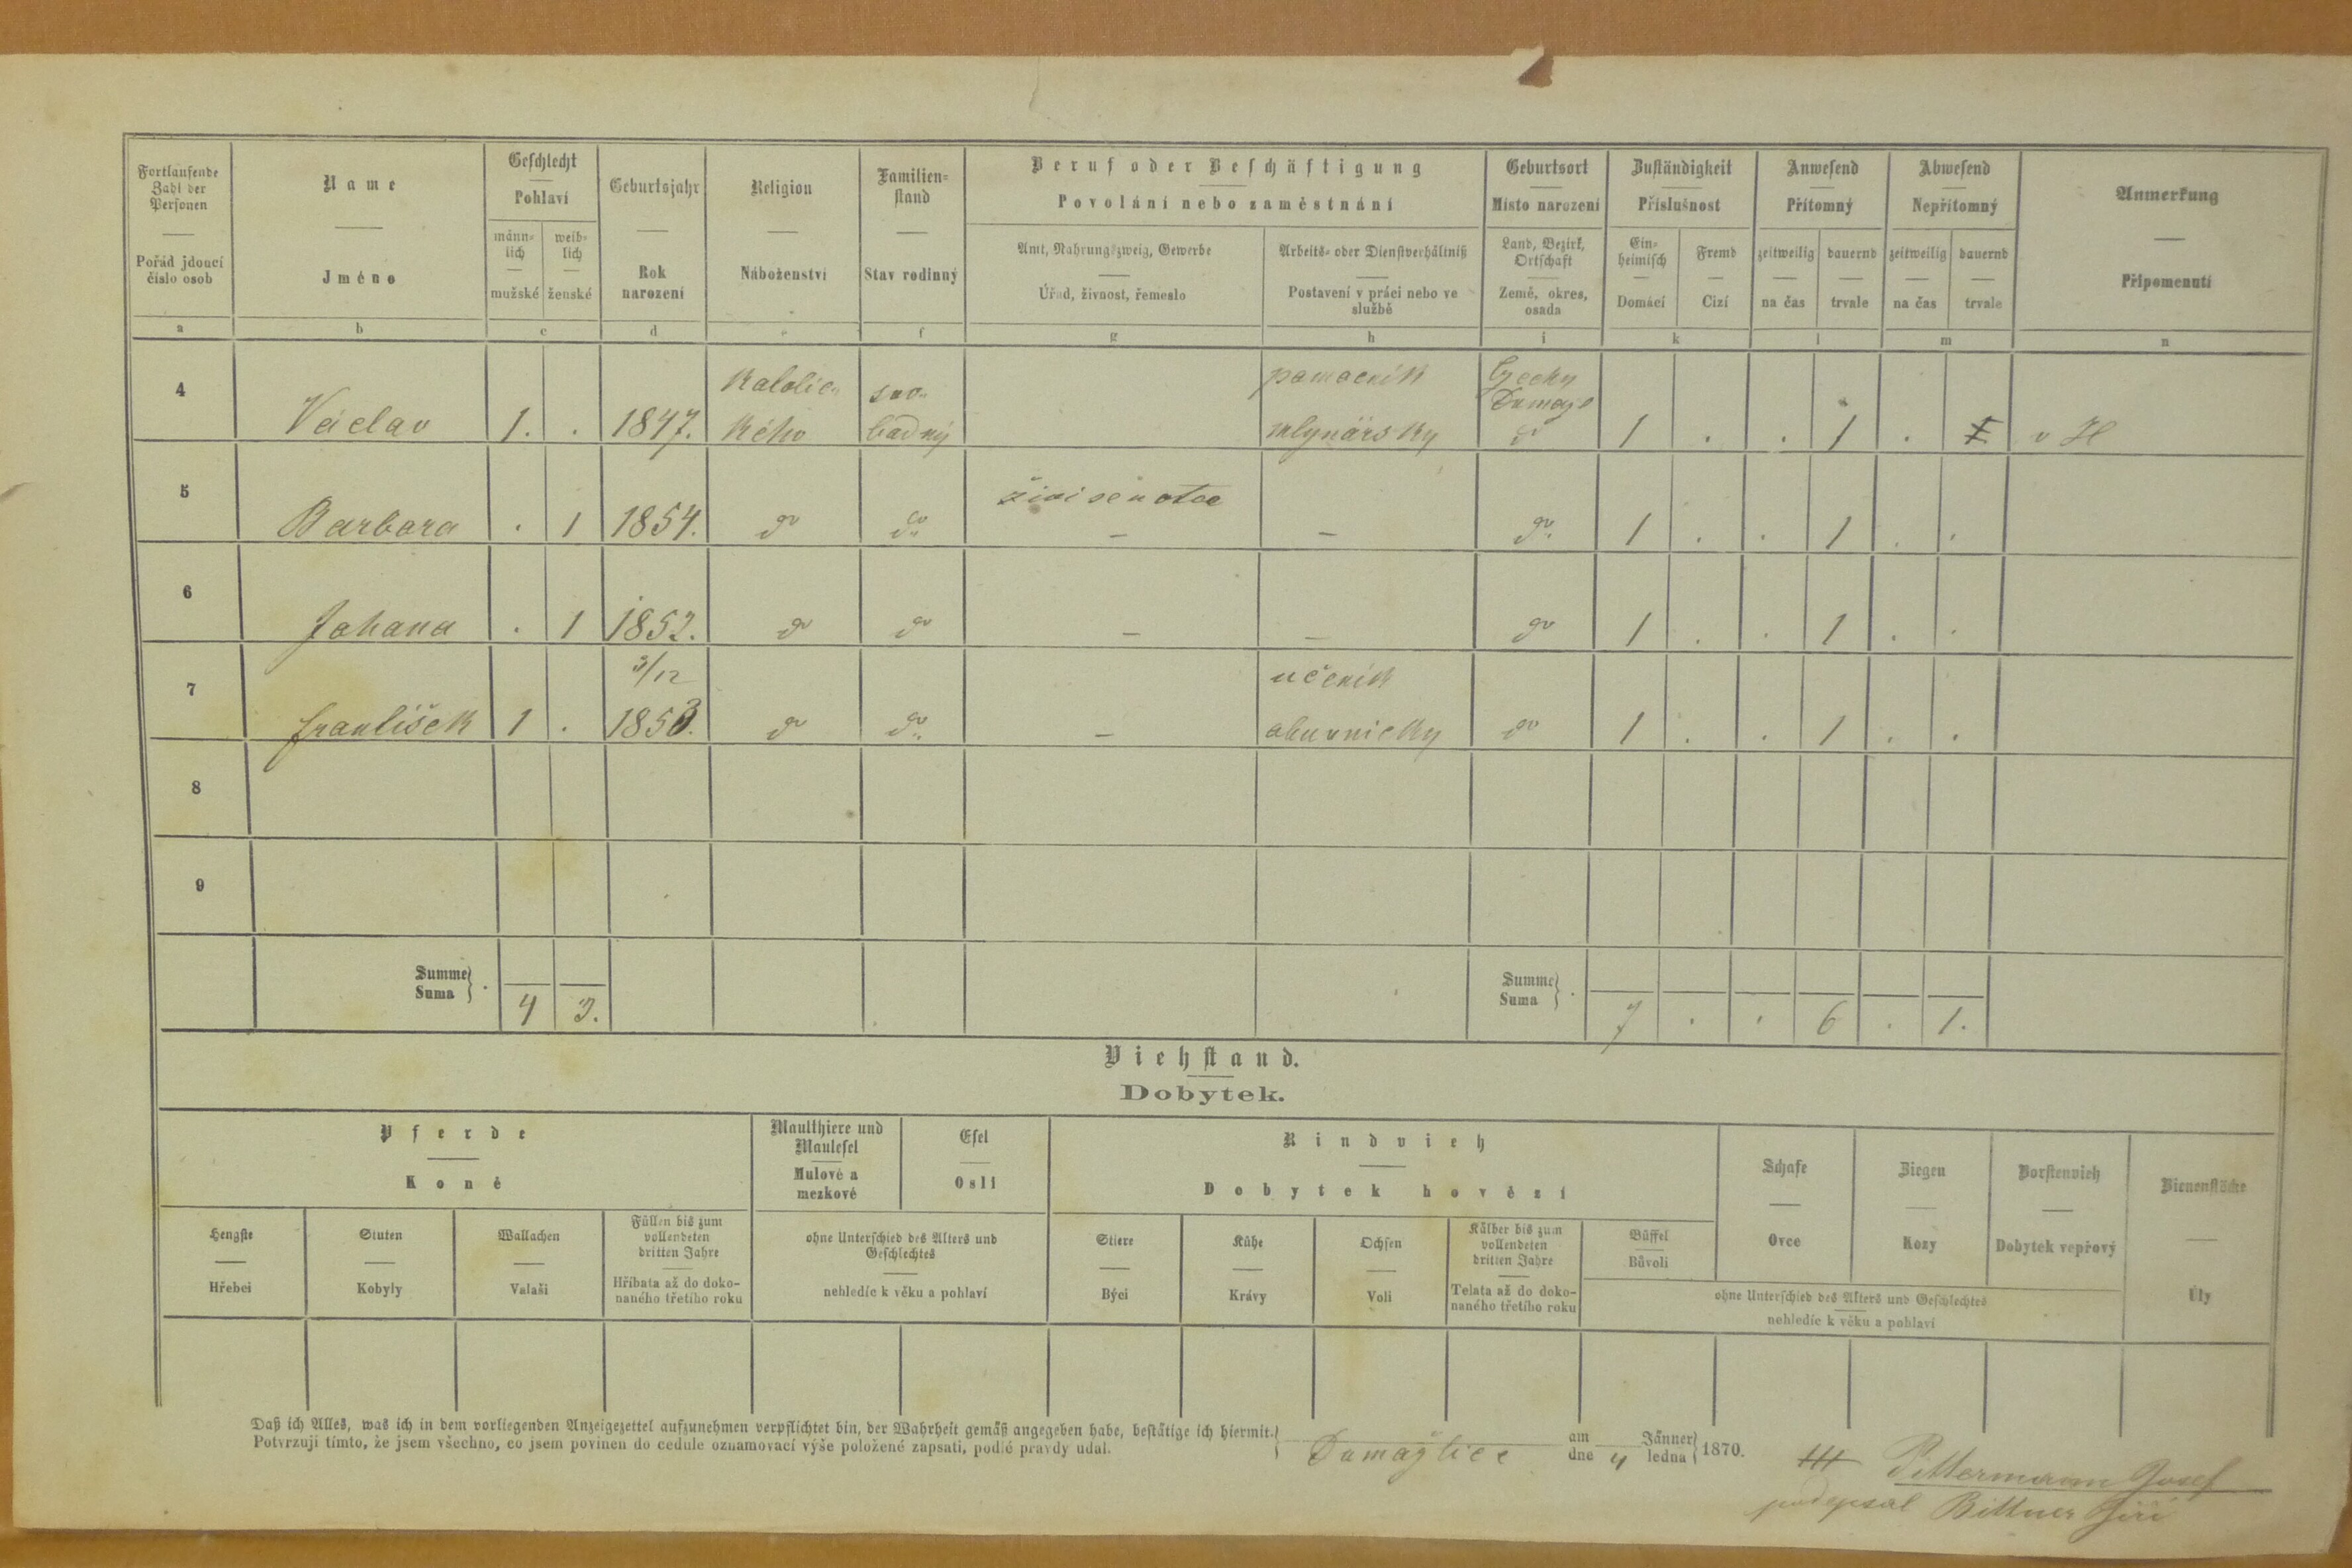 Fortlaufende Zahl der Personen
Pořád jdoucí číslo osob
Name
Jméno
Geschlecht
Pohlaví
männ-
lich
mužské
weib-
lich
ženské
Geburtsjahr
Rok
narození
Religion
Náboženství
Familien-
stand
Stav rodinný
Beruf oder Beschäftigung
Povolání nebo zaměstnání
Amt, Nahrungszweig, Gewerbe
Úřad, živnost, řemeslo
Arbeits- oder Dienstverhältniß
Postavení v práci nebo ve
službě
Geburtsort
Místo narození
Land, Bezirk,
Ortschaft
Země, okres,
osada
Zuständigkeit
Příslušnost
Ein-
heimisch
Domácí
Fremd
Cizí
Anwesend
Přítomný
zeitweilig
na čas
dauernd
trvale
Abwesend
Nepřítomný
zeitweilig
na čas
dauernd
trvale
Anmerkung
Připomenutí
a b c d e f g h i k l m n
4 Václav 1. . 1847. Katolic- kého svo- bodný pomocník mlynářsky Čechy Domažl 1 . . 1 .
5 Barbara . 1 1854. do do živi se u otce — — do 1 . . 1 . .
6 Johana . 1 1852. do do — — do 1 . . 1 . .
7 František 1 . 3/12 1853. do do — učeník obuvnický do 1 . . 1 . .
8
9
Summe
Suma
4 3.
Summe
Suma
7 . . 6 . 1.
Viehstand.
Dobytek.
Pferde
Koně
Hengste
Hřebci
Stuten
Kobyly
Wallachen
Valaši
Füllen bis zum
vollendeten
dritten Jahre
Hříbata až do doko-
naného třetího roku
Maulthiere und
Maulesel
Mulové a
mezkové
Esel
Osli
ohne Unterschied des Alters und
Geschlechtes
nehledíc k věku a pohlaví
Rindvieh
Dobytek hovězí
Stiere
Býci
Kühe
Krávy
Ochsen
Voli
Kälber bis zum
vollendeten
dritten Jahre
Telata až do doko-
naného třetího roku
Büffel
Bůvoli
Schafe
Ovce
Ziegen
Kozy
Borstenvieh
Dobytek vepřový
ohne Unterschied des Alters und Geschlechtes
nehledíc k věku a pohlaví
Bienenstöcke
Úly
Daß ich Alles, was ich in dem vorliegenden Anzeigezettel aufzunehmen verpflichtet bin, der Wahrheit gemäß angegeben habe, bestätige ich hiermit.
Potvrzuji tímto, že jsem všechno, co jsem povinen do cedule oznamovací výše položené zapsati, podlé pravdy udal.
Domažlice
am
dne
4
Jänner
ledna
1870.
Pittermann Josef
podepsal Bittner Jiří